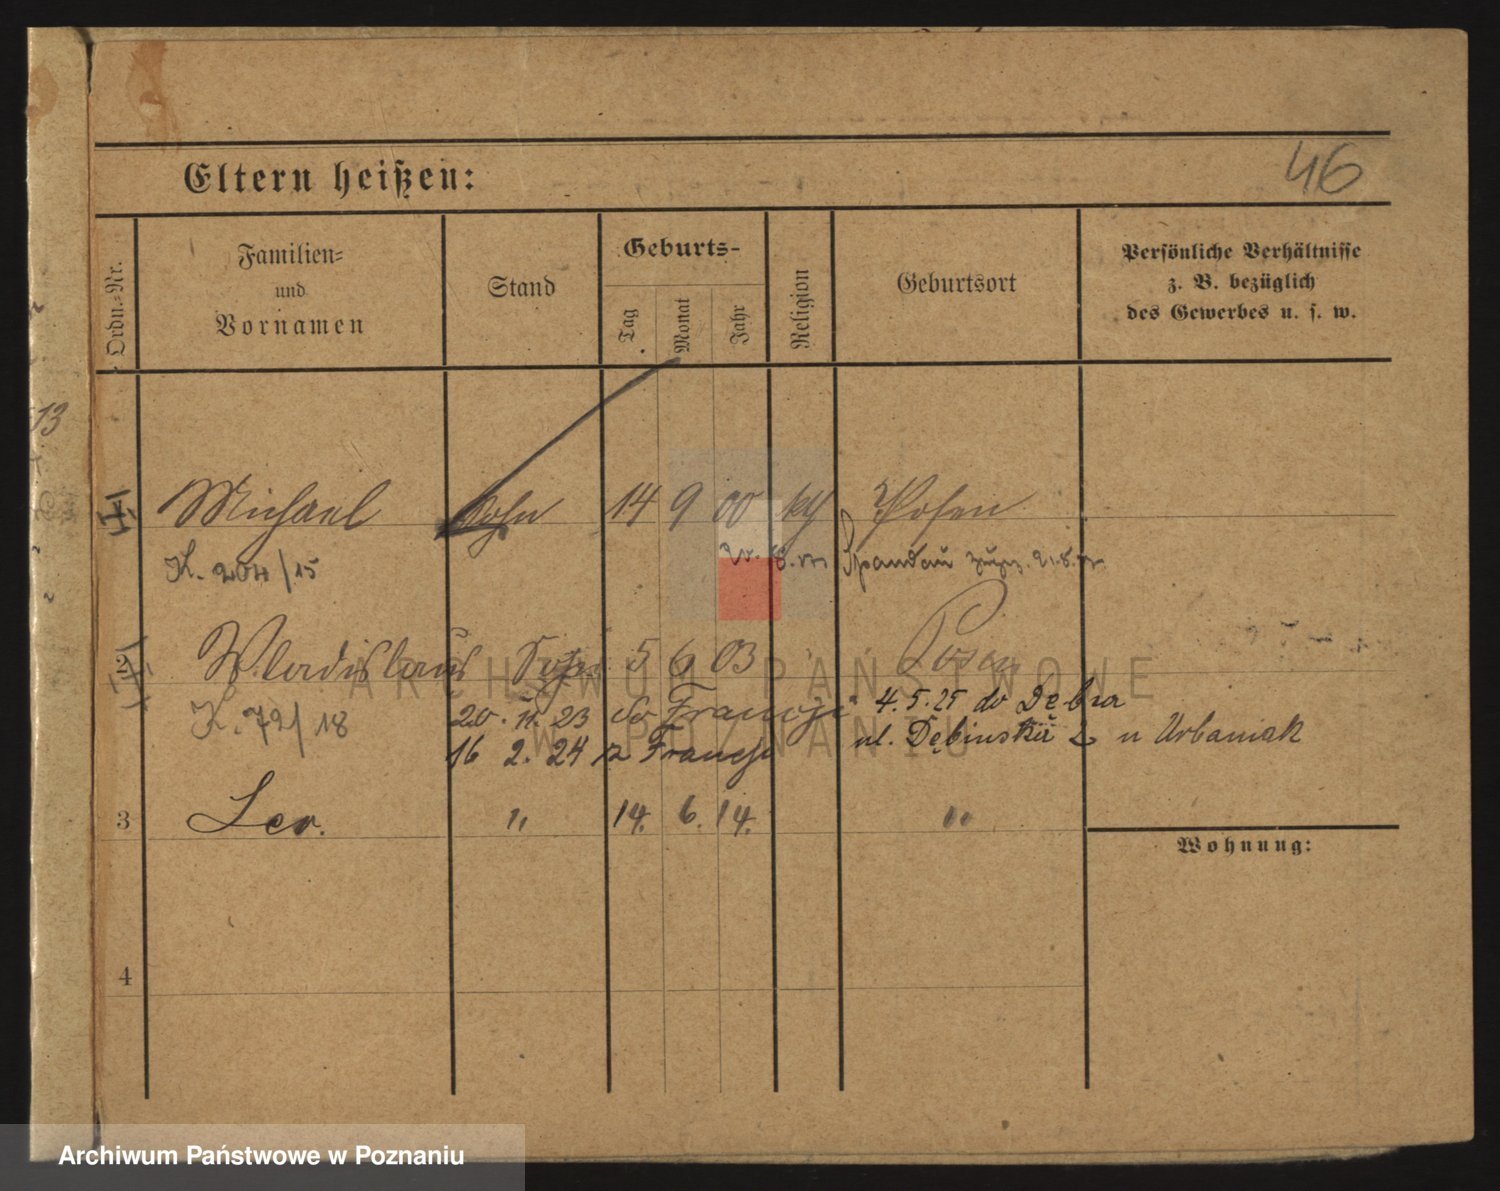 46
Eltern heißen:
Ordn.-Nr.
Familien-
und
Vornamen
Stand
Geburts-
Tag
Monat
Jahr
Religion
Geburtsort
Persönliche Verhältnisse
z. B. bezüglich
des Gewerbes u. s. w.
13
1 Michael Sohn 14 9 00 kth Posen
K. 204/15 Spandau 21.8.
2 Wladislaus Sohn 5 6 03 Posen
K. 72/18 20. 11. 23 do Francji 4.5.25 do Dębca
16 2. 24 z Francji ul. Dębinska 2 u Urbaniak
3 Leo. " 14. 6. 14. "
Wohnung:
4
ARCHIWUM PAŃSTWOWE
W POZNANIU
Archiwum Państwowe w Poznaniu